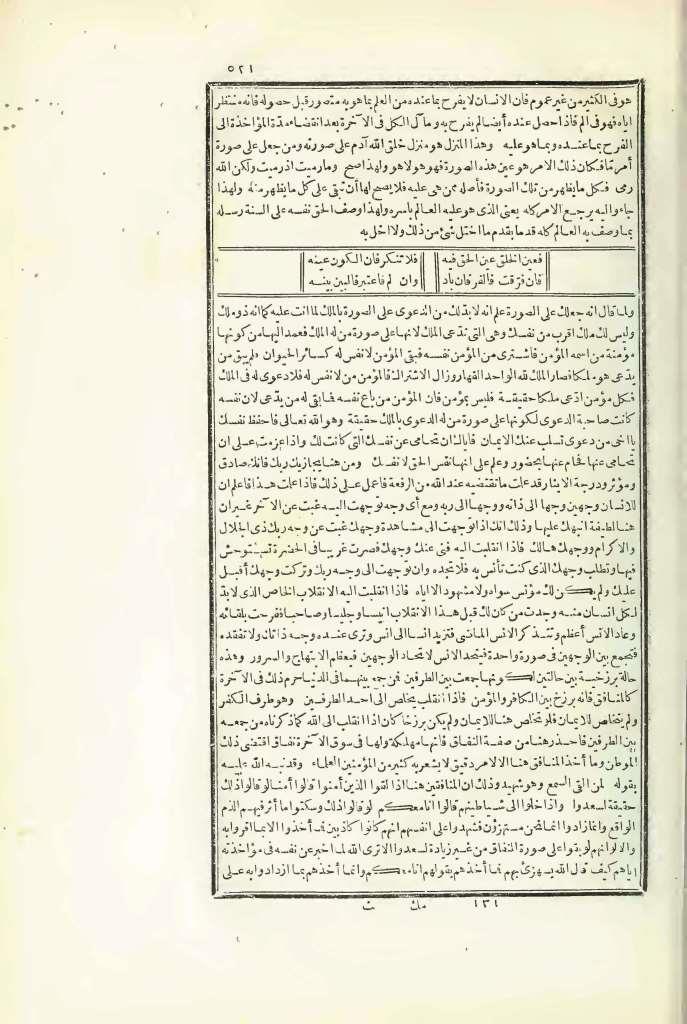 ٥٢١
هو فى الكثير من غير عموم فان الانسان لا يفرح بما عنده من العلم بما هو به متصور قبل حصوله فانه منتظر
اياه فهو فى ألم فاذا حصل عنده أيضا لم يفرح به ومآل الكل فى الآخرة بعد انقضاء مدة المؤاخذة الى
الفرح بما عنده وبما هو عليه وهذا المنزل هو منزل خلق الله آدم على صورته ومن جعل على صورة
أمر ما فكان ذلك الامر هو عين هذه الصورة فهو هو لا هو ولهذا صح وما رميت اذ رميت ولكن الله
رمى فكل ما يظهر من تلك الصورة فأصله ممن هى عليه فلا يصح لها أن تبقى على كل ما يظهر منه ولهذا
جاء واليه يرجع الامر كله يعنى الذى هو عليه العالم باسره ولهذا وصف الحق نفسه على السنة رسله
بما وصف به العالم كله قدما بقدم ما اختل شئ من ذلك ولا اخل به
فعين الخلق عين الحق فيه فلا تنكر فان الكون عينه
فان فرّقت فالفرقان باد وان لم فاعتبر فالبين بينه
ولما قال انه جعلك على الصورة علم انه لابد لك من الدعوى على الصورة بالملك لما انت عليه كما انه ذو ملك
وليس لك ملك اقرب من نفسك وهى التى تدعى الملك لانها على صورة من له الملك فعمد اليها من كونها
مؤمنة من اسمه المؤمن فاشترى من المؤمن نفسه فبقى المؤمن لا نفس له كسائر الحيوان فلم يبق من
يدعى هو ملكا فصار الملك لله الواحد القهار وزال الاشتراك فالمؤمن من لا نفس له فلا دعوى له فى الملك
فكل مؤمن ادعى ملكا حقيقة فليس بمؤمن فان المؤمن من باع نفسه فما بقى له من يدعى لان نفسه
كانت صاحبة الدعوى لكونها على صورة من له الدعوى بالملك حقيقة وهو الله تعالى فاحفظ نفسك
يا اخى من دعوى تسلب عنك الايمان فاياك ان تحامى عن نفسك التى كانت لك واذا عزمت على ان
تحامى عنها فحام عنها بحضور وعلم على انها نفس الحق لا نفسك ومن هنا يجازيك ربك فانك صادق
ومؤثر ودرجة الايثار قد علمت ما تقتضيه عند الله من الرفعة فاعمل على ذلك فاذا علمت هذا فاعلم ان
للانسان وجهين وجها الى ذاته ووجها الى ربه ومع أى وجه توجهت اليه غبت عن الآخر غير ان
هنا لطيفة انبهك عليها وذلك انك اذا توجهت الى مشاهدة وجهك غبت عن وجه ربك ذى الجلال
والاكرام ووجهك هالك فاذا انقلبت اليه فنى عنك وجهك فصرت غريبا فى الحضرة تستوحش
فيها وتطلب وجهك الذى كنت تأنس به فلا تجده وان توجهت الى وجه ربك وتركت وجهك أقبل
عليك ولم يكن لك مؤنس سواه ولا مشهود الا اياه فاذا انقلبت اليه الانقلاب الخاص الذى لابد
لكل انسان منه وجدت من كان لك قبل هذا الانقلاب انيسا وجليسا وصاحبا ففرحت بلقائه
وعاد الانس أعظم وتتذكر الانس الماضى فتزيد انسا الى انس وترى عنده وجه ذاتك ولا تفقده
فتجمع بين الوجهين فى صورة واحدة فيتحد الانس لاتحاد الوجهين فيعظم الابتهاج والسرور وهذه
حالة برزخية بين حالتين لكونها جمعت بين الطرفين فمن جمع بينهما فى الدنيا حرم ذلك فى الآخرة
كالمنافق فانه برزخ بين الكافر والمؤمن فاذا انقلب يخلص الى احد الطرفين وهو طرف الكفر
ولم يتخلص للايمان فلو تخلص هنا للايمان ولم يكن برزخا كان اذا انقلب الى الله كما ذكرناه من جمعه
بين الطرفين فاحذر هنا من صفة النفاق فانها مهلكة ولها فى سوق الآخرة نفاق اقتضى ذلك
الموطن وما أخذ المنافق هنا الا لامر دقيق لا يشعر به كثير من المؤمنين العلماء وقد نبه الله عليه
بقوله لمن القى السمع وهو شهيد وذلك ان المنافقين هنا اذا لقوا الذين آمنوا قالوا أمنا لو قالوا ذلك
حقيقة لسعدوا واذا خلوا الى شياطينهم قالوا انا معكم لو قالوا ذلك وسكتوا ما أثر فيهم الذم
الواقع وانما زادوا انما نحن مستهزؤن فشهدوا على انفسهم انهم كانوا كاذبين فما أخذوا الا بما اقروا به
والا لو انهم لو بقوا على صورة النفاق من غير زيادة لسعدوا الا ترى الله لما اخبر عن نفسه فى مؤاخذته
اياهم كيف قال الله يستهزئ بهم فما أخذهم بقولهم انا معكم وانما أخذهم بما ازدادوا به على
١٣١ مك ت